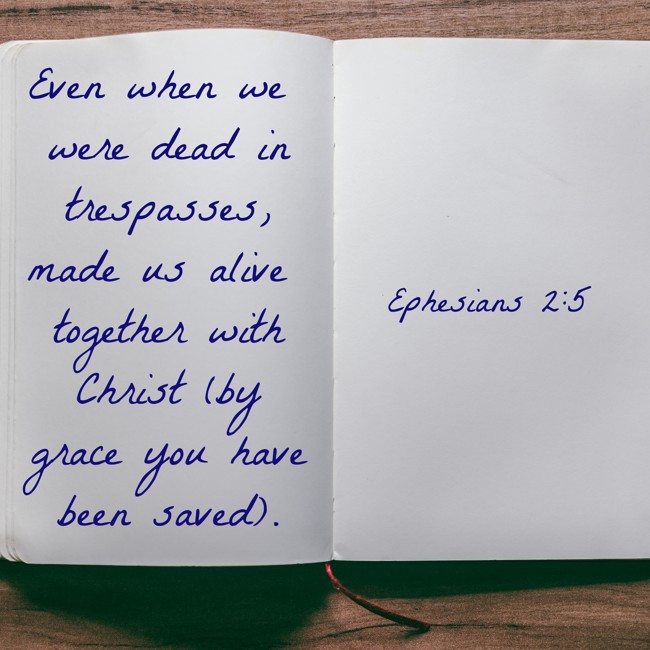 Even when we
were dead in
trespasses,
made us alive
together with
Christ (by
grace you have
been saved).
Ephesians 2:5